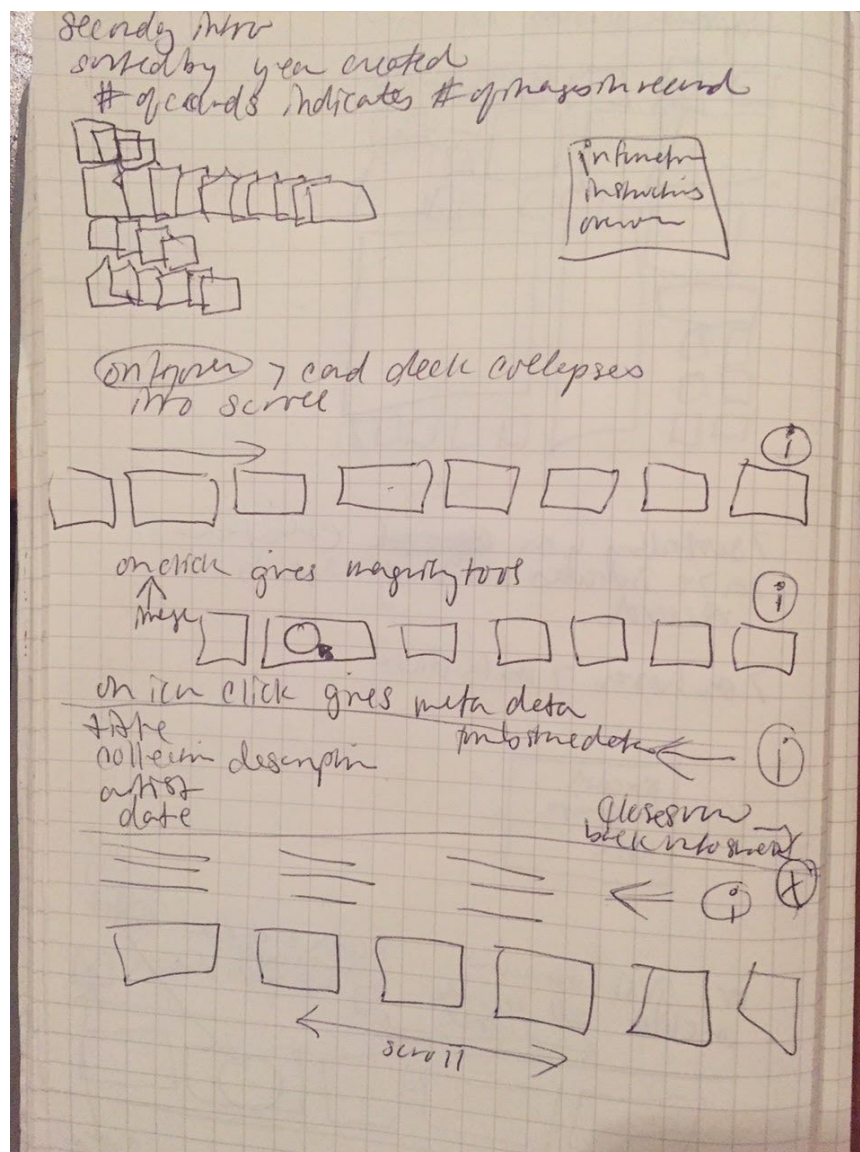 sorted by year created
# of cards indicates # of images in record
information
instructions
overview
on hover > card deck collapses
into scroll
i
on click gives magnify tool
image
i
on icon click gives meta data
title
collection description
artist
date
i
closes row
back into
i
X
scroll